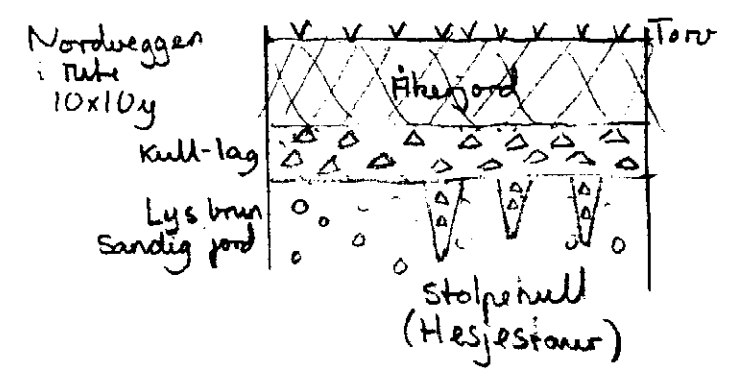 Nordveggen
i rute
10x10y
Torv
Åkerjord
Kull-lag
Lys brun
Sandig jord
Stolpehull
(Hesjestaur)